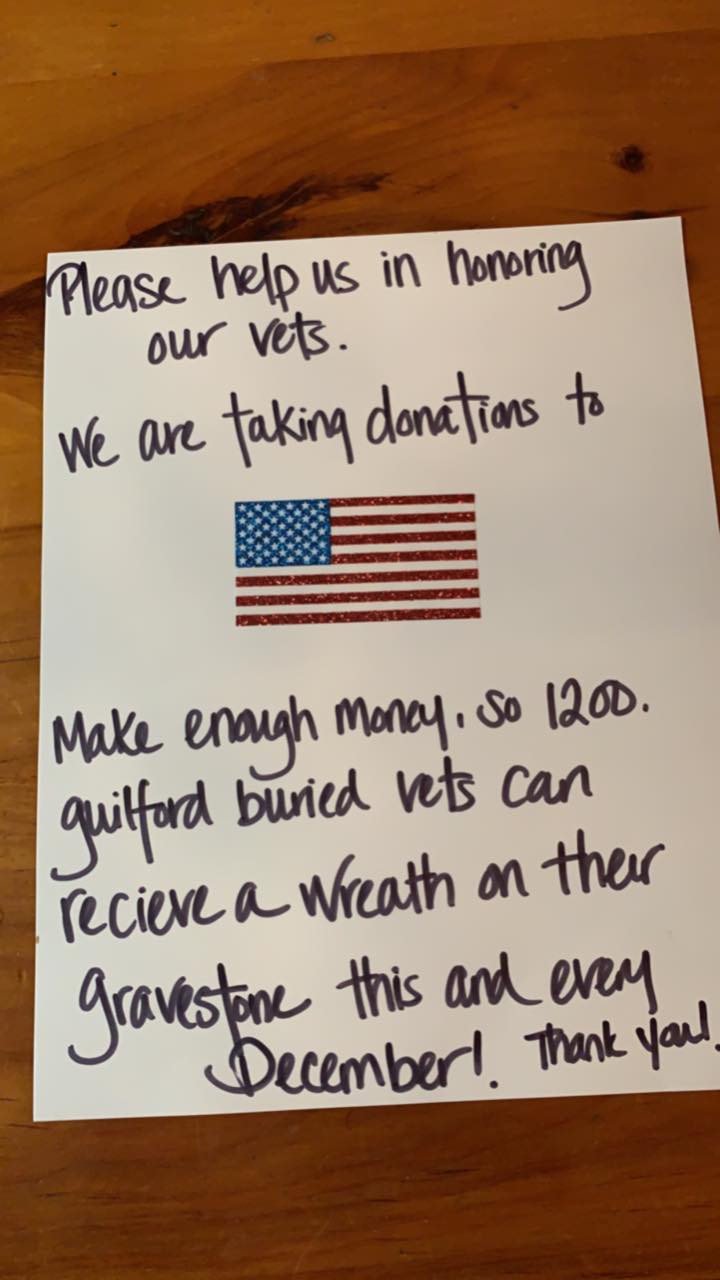 Please help us in honoring
our vets.
We are taking donations to
Make enough money, so 1200.
guilford buried vets can
recieve a wreath on their
gravestone this and every
December!. Thank you!